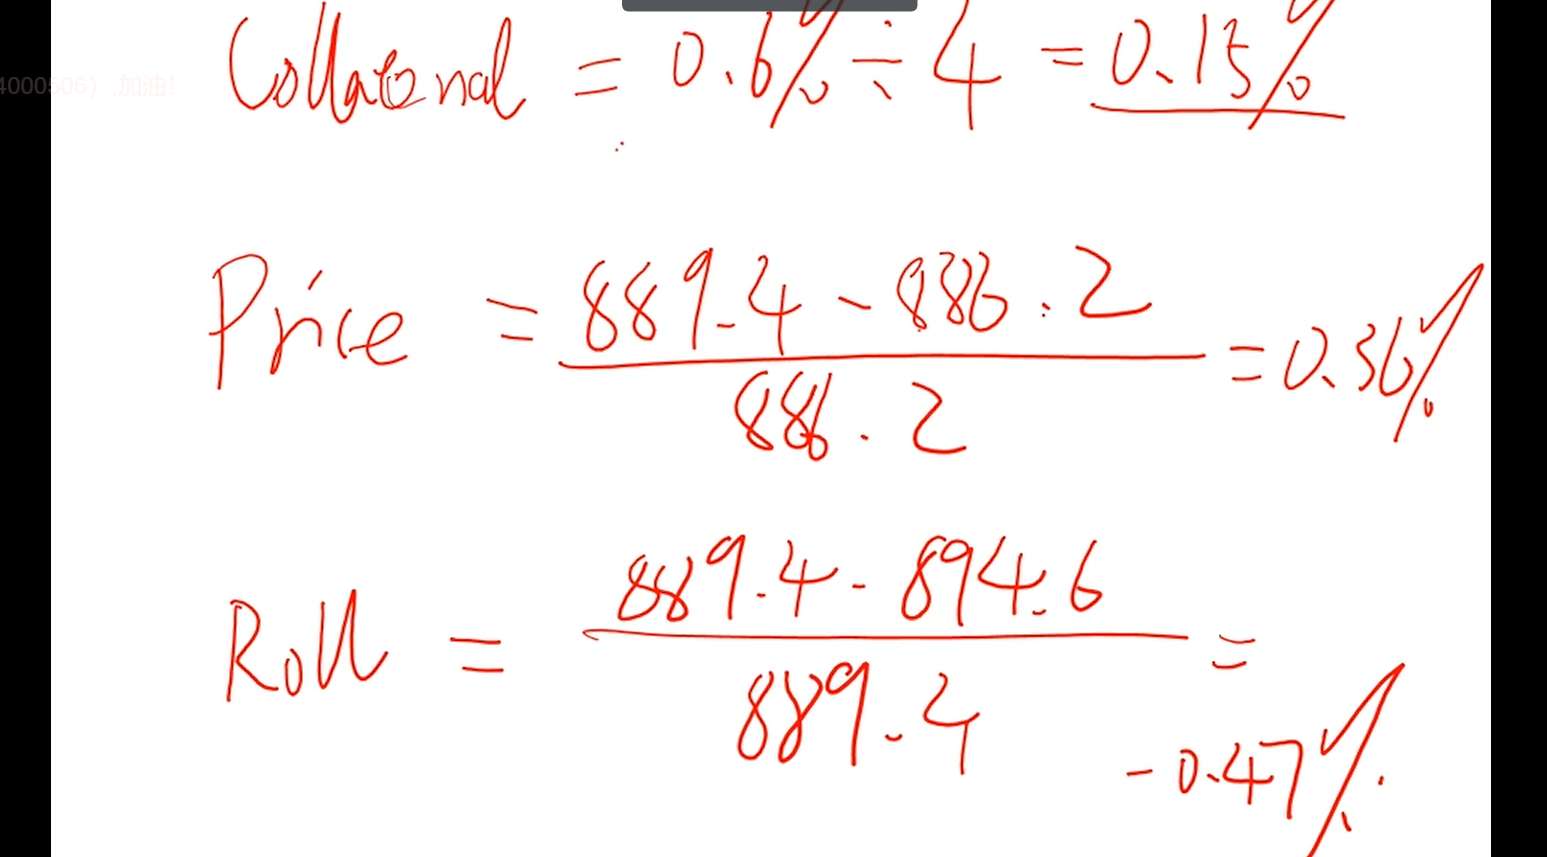 Collateral = 0.6% ÷ 4 = 0.15%
4000506) 加油!
Price = 889.4 - 886.2 / 886.2 = 0.36%
Roll = 889.4 - 894.6 / 889.4 =
-0.47%